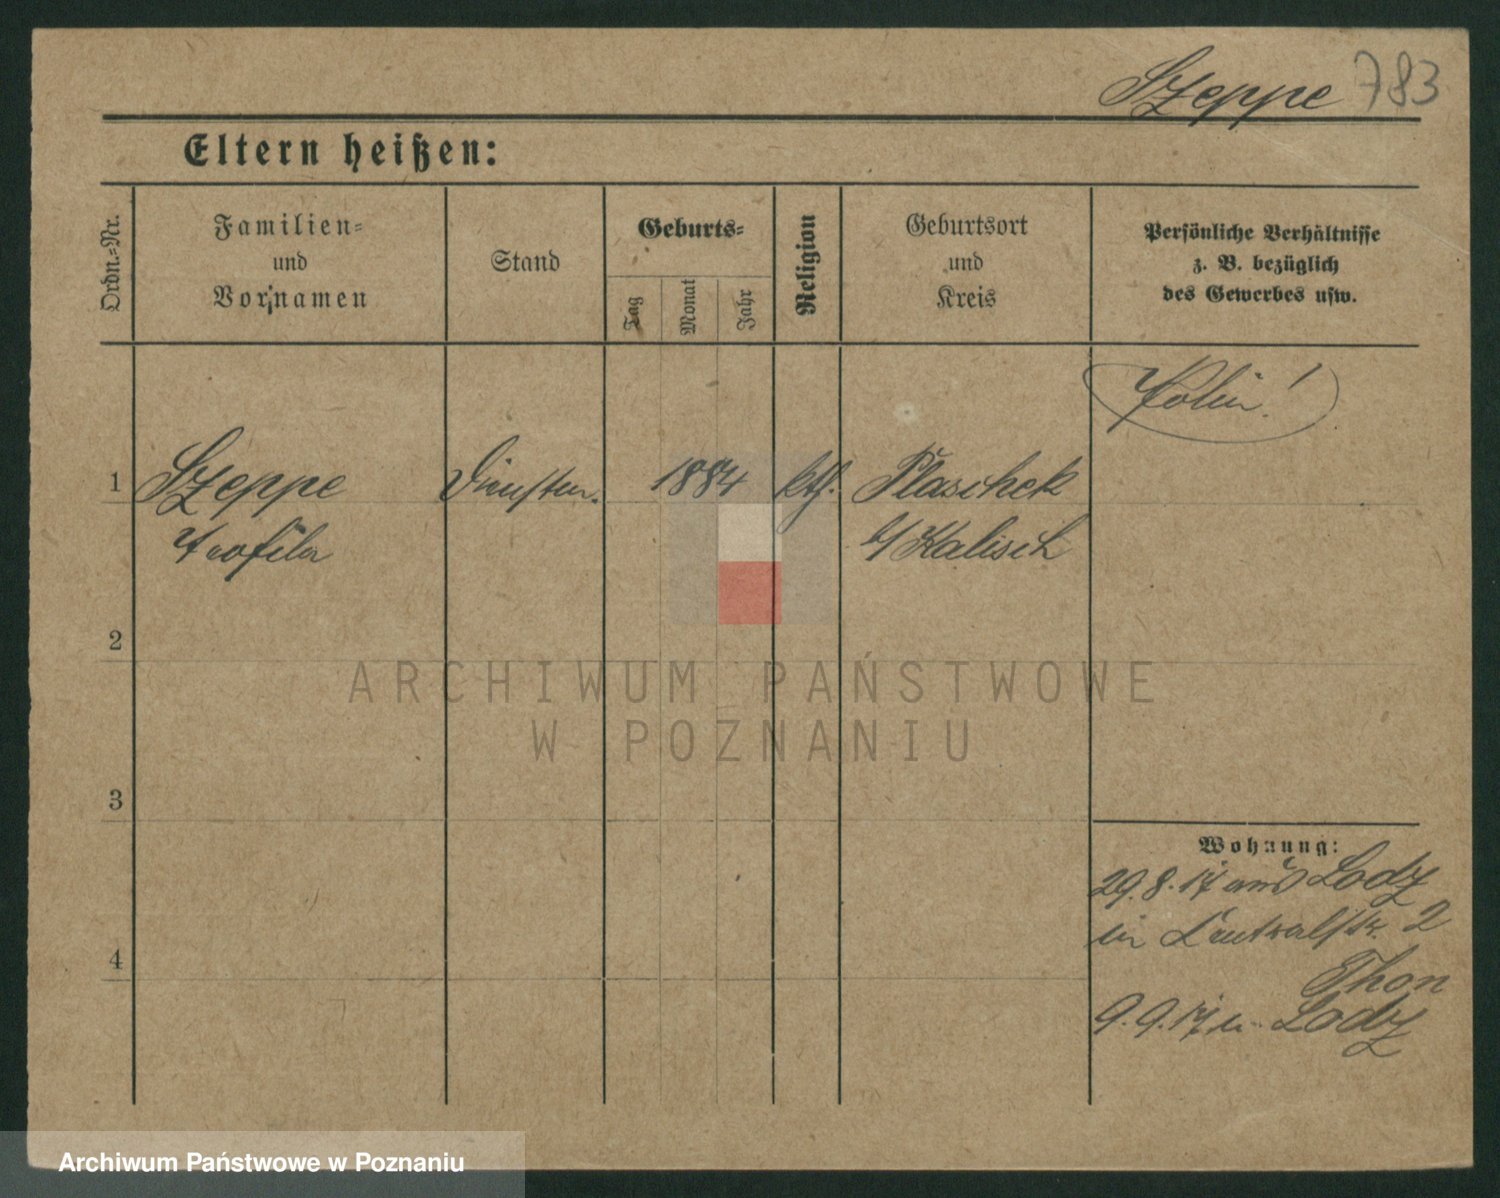 Szeppe 783
Eltern heißen:
Ordn.-Nr.
Familien-
und
Vornamen
Stand
Geburts-
Tag
Monat
Jahr
Religion
Geburtsort
und
Kreis
Persönliche Verhältnisse
z. B. bezüglich
des Gewerbes usw.
Polin!
1 Szeppe 1884 kth. Plaschek
b/ Kalisch
2
3
4
Wohnung:
29.8.17 aus Lodz
in Centralstr. 2
Thon
9.9.17 n. Lodz
ARCHIWUM PAŃSTWOWE
W POZNANIU
Archiwum Państwowe w Poznaniu